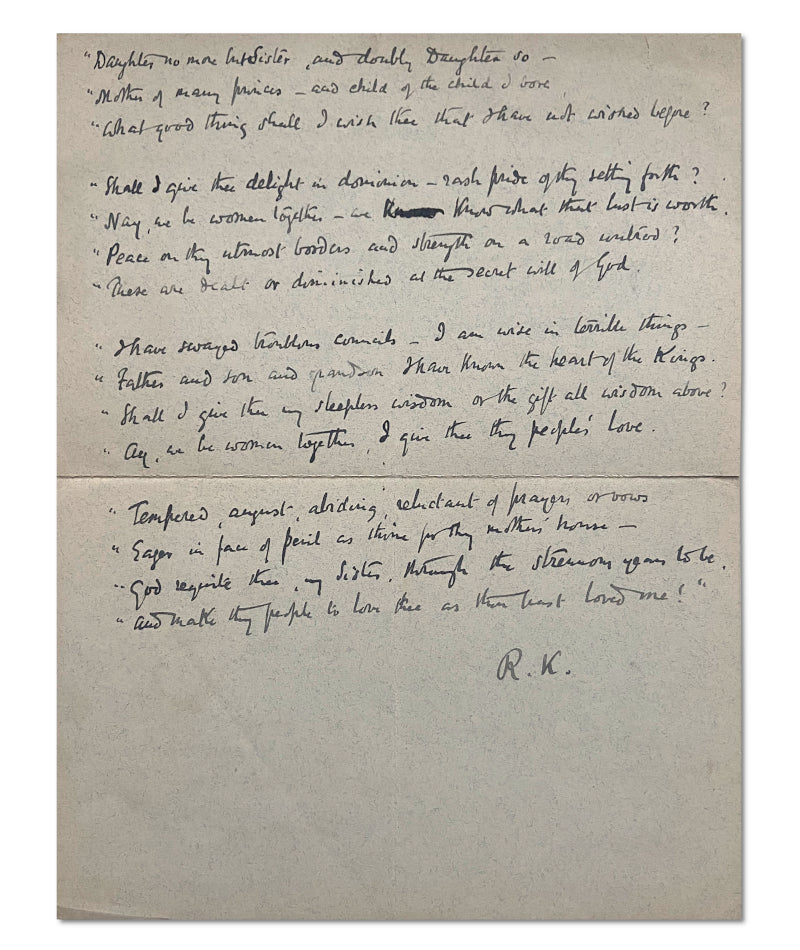 "Daughter no more but Sister, and doubly Daughter so –
"Mother of many princes – and child of the child I bore,
"What good thing shall I wish thee that I have not wished before?
"Shall I give thee delight in dominion – rash pride of thy setting forth?
"Nay, we be women together – we know what that lust is worth.
"Peace on thy utmost borders and strength on a road untrod?
"These are dealt or diminished at the secret will of God.
"I have swayed troublous councils – I am wise in terrible things –
"Father and son and grandson I have known the heart of the Kings.
"Shall I give thee my sleepless wisdom or the gift all wisdom above?
"Ay, we be women together, I give thee thy people's love.
"Tempered, august, abiding, reluctant of prayers or vows
"Eager in face of peril as thine for thy mother's house –
"God requite thee, my Sister, through the strenuous years to be,
"And make thy people to love thee as thou hast loved me!"
R. K.